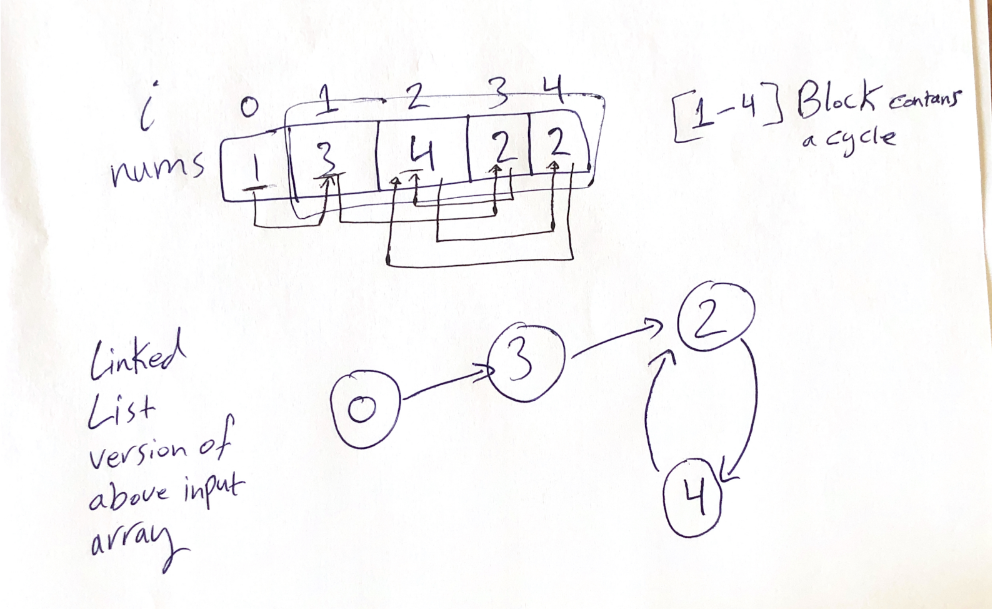 i 0 1 2 3 4
nums 1 3 4 2 2
[1-4] Block contans
a cycle
Linked
List
version of
above input
array
0 3 2
4